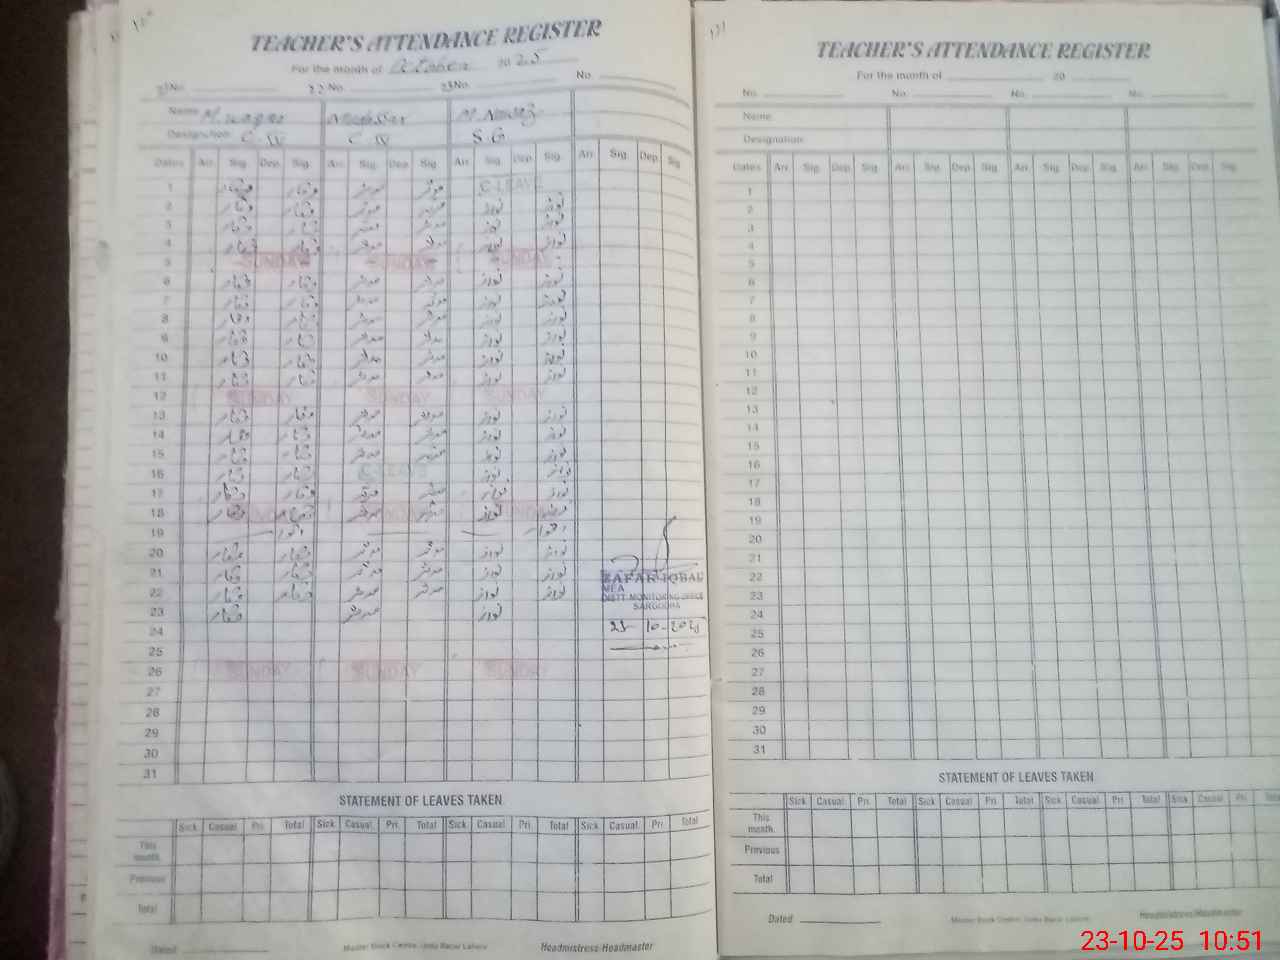 TEACHER'S ATTENDANCE REGISTER
For the month of October 2025
21 No. 22 No. 23 No. No.
Name M. waqar Mudassar M. Nawaz
Designation C-IV C-IV S.G
Dates Arr. Sig. Dep. Sig. Arr. Sig. Dep. Sig. Arr. Sig. Dep. Sig. Arr. Sig. Dep. Sig.
1 وقار وقار مدثر مدثر C-LEAVE
2 وقار وقار مدثر مدثر نواز نواز
3 وقار وقار مدثر مدثر نواز نواز
4 وقار وقار مدثر مدثر نواز نواز
5 SUNDAY SUNDAY SUNDAY
6 وقار وقار مدثر مدثر نواز نواز
7 وقار وقار مدثر مدثر نواز نواز
8 وقار وقار مدثر مدثر نواز نواز
9 وقار وقار مدثر مدثر نواز نواز
10 وقار وقار مدثر مدثر نواز نواز
11 وقار وقار مدثر مدثر نواز نواز
12 SUNDAY SUNDAY SUNDAY
13 وقار وقار مدثر مدثر نواز نواز
14 وقار وقار مدثر مدثر نواز نواز
15 وقار وقار مدثر مدثر نواز نواز
16 وقار وقار C-LEAVE نواز نواز
17 وقار وقار مدثر مدثر نواز نواز
18 وقار وقار مدثر مدثر نواز نواز
19 اتوار اتوار
20 وقار وقار مدثر مدثر نواز نواز
21 وقار وقار مدثر مدثر نواز نواز
22 وقار وقار مدثر مدثر نواز نواز
23 وقار مدثر نواز
24
25
26 SUNDAY SUNDAY SUNDAY
27
28
29
30
31
ZAFAR IQBAL
MEA
DISTT. MONITORING OFFICE
SARGODHA
23-10-2025
STATEMENT OF LEAVES TAKEN
Sick Casual. Pri. Total Sick. Casual. Pri. Total Sick. Casual. Pri. Total Sick. Casual. Pri. Total
This month.
Previous
Total
Dated
Headmistress/Headmaster
131
TEACHER'S ATTENDANCE REGISTER
For the month of 20
No. No. No. No.
Name
Designation
Dates Arr. Sig. Dep. Sig. Arr. Sig. Dep. Sig. Arr. Sig. Dep. Sig. Arr. Sig. Dep. Sig.
1
2
3
4
5
6
7
8
9
10
11
12
13
14
15
16
17
18
19
20
21
22
23
24
25
26
27
28
29
30
31
STATEMENT OF LEAVES TAKEN
Sick Casual. Pri. Total Sick. Casual. Pri. Total Sick. Casual. Pri. Total Sick. Casual. Pri. Total
This month.
Previous
Total
Dated
Headmistress/Headmaster
23-10-25 10:51